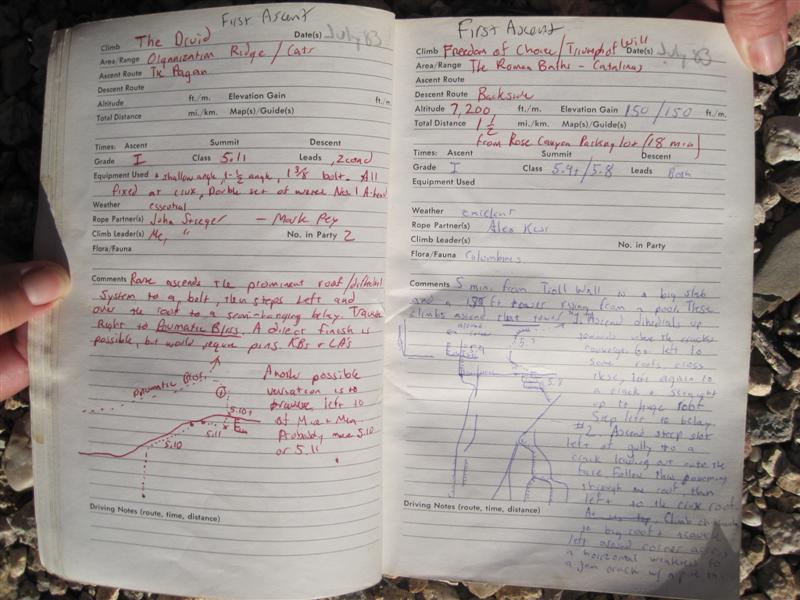 First Ascent
Climb The Druid Date(s) July 83
Area/Range Organization Ridge / Cats
Ascent Route The Pagan
Descent Route
Altitude ft./m. Elevation Gain ft./m.
Total Distance mi./km. Map(s)/Guide(s)
Times: Ascent Summit Descent
Grade I Class 5.11 Leads , 2cond
Equipment Used shallow angle, 1-½ angle, 1 3/8 bolt. All
fixed at crux, Double set of wires No. 1 A-head
Weather essential
Rope Partner(s) John Steiger — Mark
Climb Leader(s) Me, " No. in Party 2
Flora/Fauna
Comments Route ascends the prominent roof/dihedral
system to a bolt, then steps left and
over the roof to a semi-hanging belay. Traverse
Right to Pnumatic Bliss. A direct finish is
possible, but would require pins KBs + LA's
pnumatic Bliss
Another possible
variation is to
traverse left to
of Mice + Men
Probably more 5.10
or 5.11
5.10+
5.11
5.10
Driving Notes (route, time, distance)
First Ascent
Climb Freedom of Choice/Triumph of Will Date(s) July 83
Area/Range The Roman Baths - Catalinas
Ascent Route
Descent Route Backside
Altitude 7,200 ft./m. Elevation Gain 150/150 ft./m.
Total Distance 1 ½ mi./km. Map(s)/Guide(s)
from Rose Canyon Parking lot (18 min)
Times: Ascent Summit Descent
Grade I Class 5.9+/5.8 Leads Both
Equipment Used
Weather excellent
Rope Partner(s) Alex
Climb Leader(s) No. in Party
Flora/Fauna Columbines
Comments 5 min. from Troll Wall to a big slab
and a ft tower rising from a pool. These
climbs ascend that tower #1. Ascend dihedrals up
towards where the cracks
converge. Go left to
some roofs, cross
these, left again to
a crack + straight
up to huge roof
Step left to belay
#2. Ascend steep slot
left of gully to a
crack leading out onto the
face Follow this
through one roof, then
left to the crux roof.
Climb
to big roof +
left around corner across
a horizontal weakness to
a jam crack w/
5.9
5.7
5.8
Driving Notes (route, time, distance)